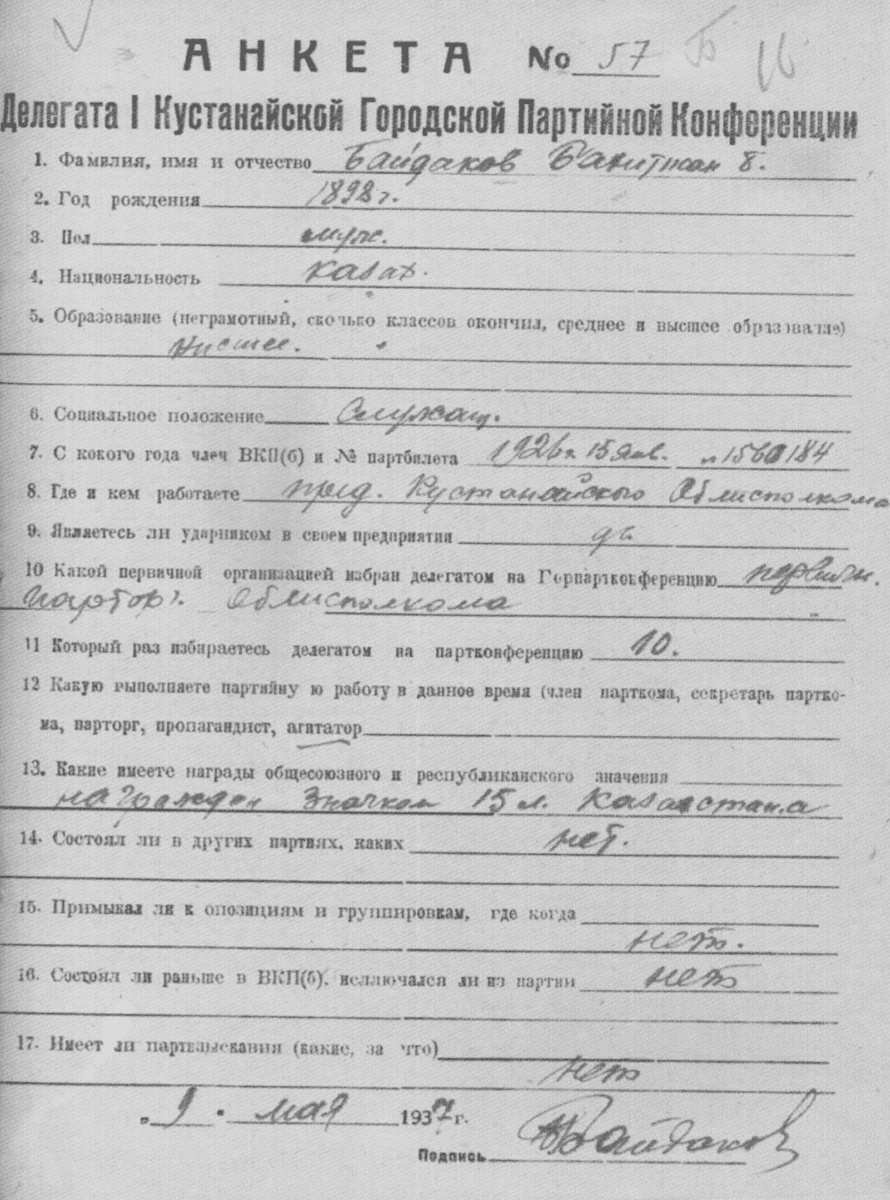 АНКЕТА № 57 Б
Делегата I Кустанайской Городской Партийной Конференции
1. Фамилия, имя и отчество Байдаков Б. 
2. Год рождения 1898 г.
3. Пол муж.
4. Национальность казах.
5. Образование (неграмотный, сколько классов окончил, среднее и высшее образование)
низшее.
6. Социальное положение служащ.
7. С кокого года член ВКП(б) и № партбилета 1926 г. 15 янв. №1560184
8. Где и кем работаете пред. Кустанайского Облисполкома
9. Являетесь ли ударником в своем предприятии да
10 Какой первичной организацией избран делегатом на Горпартконференцию первичн.
партор. Облисполкома
11 Который раз избираетесь делегатом на партконференцию 10.
12 Какую выполняете партийну ю работу в данное время (член парткома, секретарь партко-
ма, парторг, пропагандист, агитатор
13. Какие имеете награды общесоюзного и республиканского значения
награжден Значком 15 л. Казахстана
14. Состоял ли в других партиях, каких нет.
15. Примыкал ли к опозициям и группировкам, где когда
нет.
16. Состоял ли раньше в ВКП(б), исключался ли из партии нет
17. Имеет ли партвзыскания (какие, за что)
нет
„ 9 " мая 1937 г.
Подпись Байдаков